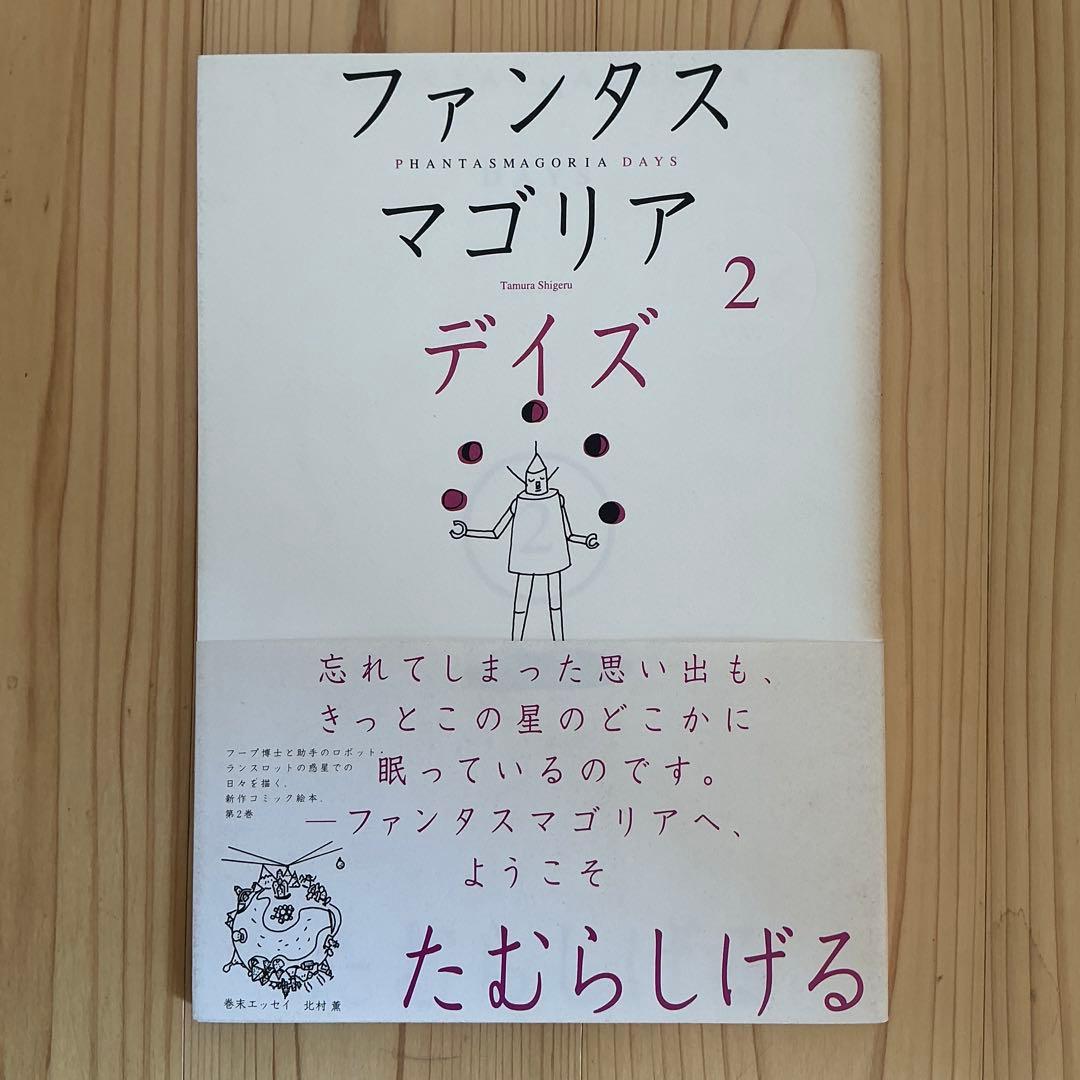 ファンタス
PHANTASMAGORIA DAYS
マゴリア
Tamura Shigeru
2
デイズ
2
忘れてしまった思い出も、
きっとこの星のどこかに
眠っているのです。
―ファンタスマゴリアへ、
ようこそ
フープ博士と助手のロボット・
ランスロットの惑星での
日々を描く、
新作コミック絵本、
第2巻
たむらしげる
巻末エッセイ 北村 薫